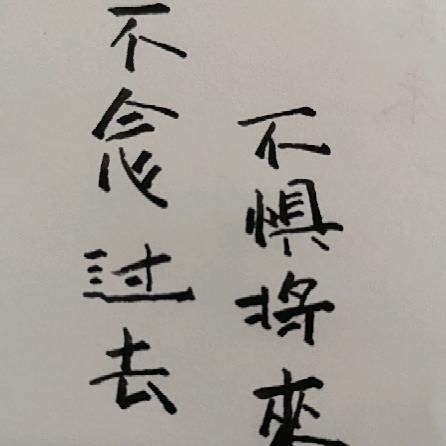 不惧将來
不念过去